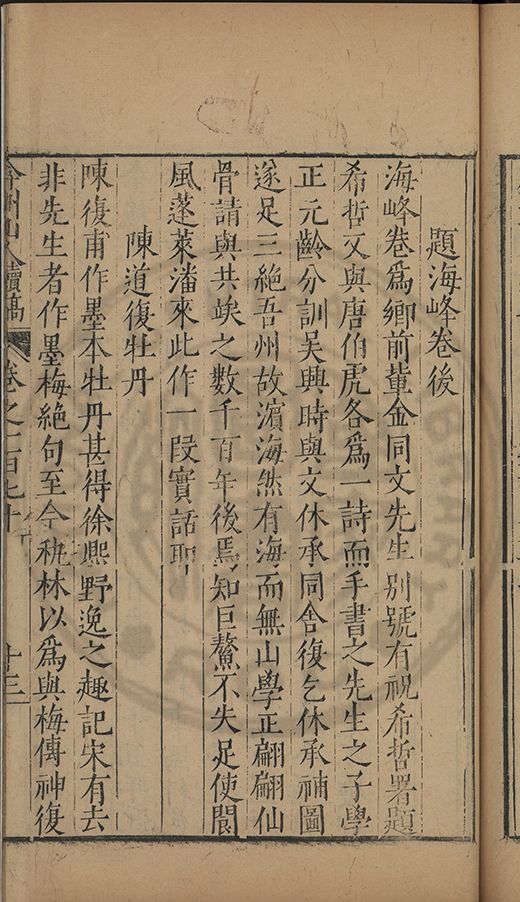 題海峰卷後
海峰卷爲鄉前輩金同文先生別號有祝希哲署題
希哲又與唐伯虎各爲一詩而手書之先生之子學
正元齡分訓吳興時與文休承同舍復乞休承補圖
遂足三絕吾州故濵海然有海而無山學正翩翩仙
骨請與共竢之數千百年後焉知巨鰲不失足使閬
風蓬萊潘來此作一段實話耶
陳道復牡丹
陳復甫作墨本牡丹甚得徐熙野逸之趣記宋有去
非先生者作墨梅絕句至今秇林以爲與梅傳神復
弇州山人續稿
卷之一百七十
十三